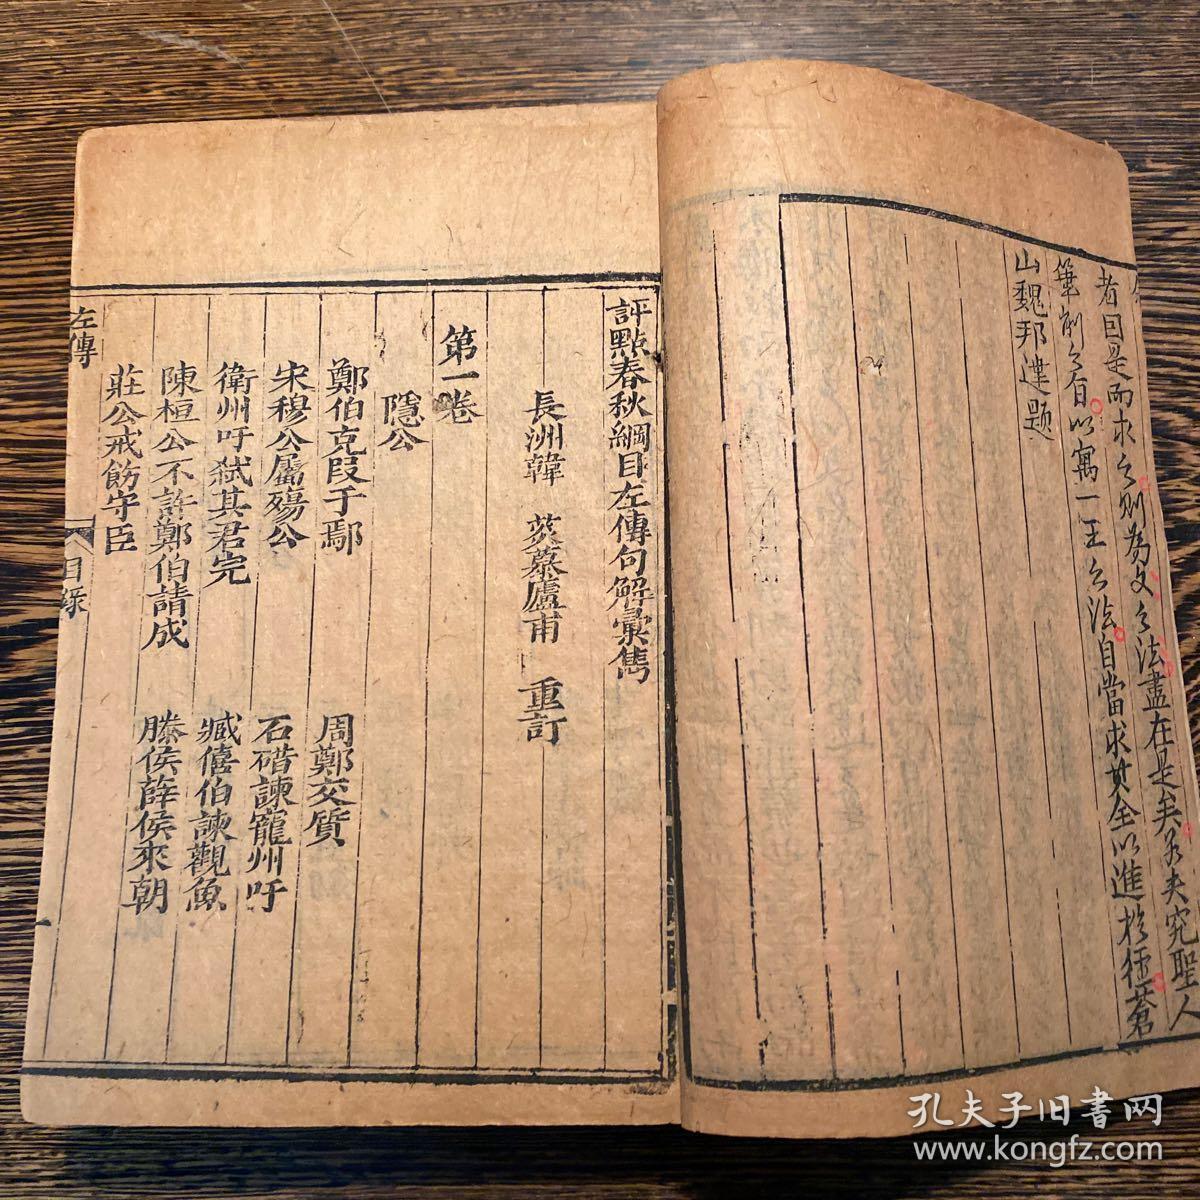 者曰是而求之則為文之法盡在是矣若夫究聖人
筆削之旨以寓一王之法自當求其全以進於經蒼
山魏邦達題
評點春秋綱目左傳句解彙雋
長洲韓 菼慕廬甫 重訂
第一卷
隱公
鄭伯克段于鄢 周鄭交質
宋穆公屬殤公 石碏諫寵州吁
衛州吁弒其君完 臧僖伯諫觀魚
陳桓公不許鄭伯請成 滕侯薛侯來朝
莊公戒飭守臣
左傳 目錄 一
孔夫子旧書网
www.kongfz.com